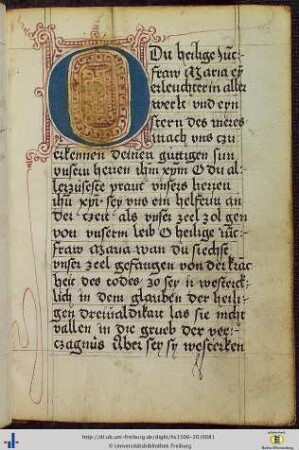 O Du heilige Jūck
fraw Maria ey
erleuchterin aller
werlt vnd eyn
stern des meres
mach vns czu
erkennen deinen gūttigen sun
vnsern herren ihm xpm O du al
lerzuseste praut vnsers herren
ihū xpi sey vns ein helferin an
der czeit als vnser zeel zol gen
von vnserm leib O heilige iūck
fraw Maria wan du siechst
vnser zeel gefangen von der kranc
heit des todes zo ser ir westerck
lich in dem glauben der heili
gen driualdikait las sie nicht
vallen in die grueb der ver
czagnūs Aber ser sy westerken
http://dl.ub.uni-freiburg.de/diglit/hs1500-20/0081
© Universitätsbibliothek Freiburg